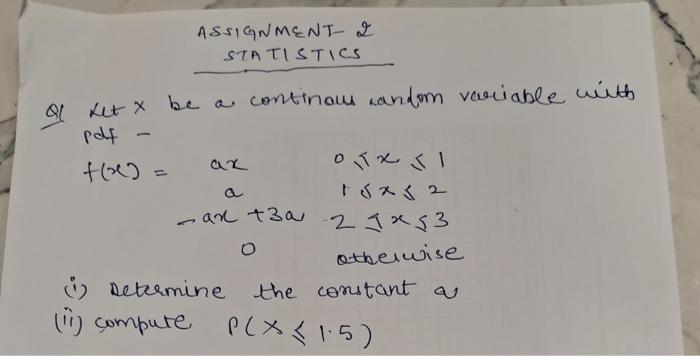 ASSIGNMENT 2
STATISTICS
Q1 Let x be a continous random variable with
pdf -
f(x) = ax 0 ≤ x ≤ 1
a 1 ≤ x ≤ 2
-ax + 3a 2 ≤ x ≤ 3
0 otherwise
(i) Determine the constant a
(ii) compute P(X ≤ 1.5)